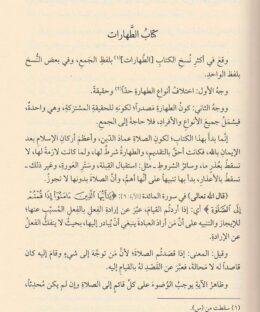 كتابُ الطَّهارات
وقعَ في أكثرِ نُسخِ الكتابِ [الطَّهارات](١) بلفظِ الجَمعِ، وفي بعضِ النُّسخِ
بلفظِ الواحدِ.
وجهُ الأول: اختلافُ أنواعِ الطهارةِ حدًّا وحقيقةً.
ووجهُ الثاني: كونُ الطهارةِ مصدراً، كونُه للحقيقةِ المشتركةِ، وهي واحدةٌ،
فيشملُ جميعَ الأنواعِ والأفرادِ، فلا حاجةَ إلى الجمعِ.
إنَّما بدأ بهذا الكتاب؛ لكونِ الصلاةِ عمادَ الدِّين، وأعظمَ أركانِ الإسلامِ بعدَ
الإيمانِ بالله، فكانت أحقَّ بالتقديم، والطهارةُ شرطٌ لها، ولما كانت لازمةً لها، لا
تسقطُ بعُذرٍ ما، وسائرُ الشروطِ ـ مثل: استقبالِ القبلة، وسَترِ العَورةِ، وغيرِ ذلك ـ
تسقطُ بالأعذار، بدأ بها تنبيهاً على أنَّها أهمُّ، وأنَّ الصلاةَ بدونِها لا تجوزُ.
(قال الله تعالى) في سورةِ المائدة: ﴿يَٰٓأَيُّهَا ٱلَّذِينَ ءَامَنُوٓا۟ إِذَا قُمْتُمْ
إِلَى ٱلصَّلَوٰةِ﴾ أي: إذا أردتُم القيامَ، عبَّرَ عن إرادةِ الفعلِ بالفعلِ المُسبَّبِ عنها؛
للإيجازِ، والتنبيهِ على أنَّ مَن أرادَ العبادةَ ينبغي أنْ يُبادرَ إليها، بحيثُ لا ينفكُّ الفعلُ
عن الإرادةِ.
وقيل: المعنى: إذا قصدتُم الصلاةَ؛ لأنَّ مَن توجَّهَ إلى شيءٍ وقامَ إليه كان
قاصداً له لا مَحالةَ، فعبَّرَ عن القَصدِ لهُ بالقيامِ إليه.
وظاهرُ الآيةِ يوجبُ الوضوءَ على كلِّ قائمٍ إلى الصلاةِ وإن لم يكن مُحدِثاً،
(١) سقطت من (س).